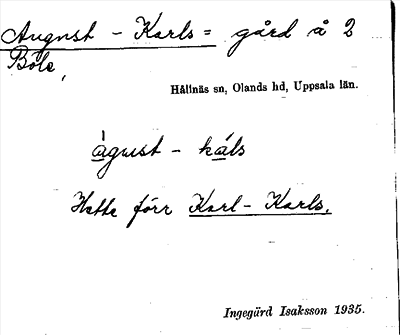 August - Karls = gård å 2
Böle,
Hållnäs sn, Olands hd, Uppsala län.
àgust - káls
Hette förr Karl - Karls.
Ingegärd Isaksson 1935.